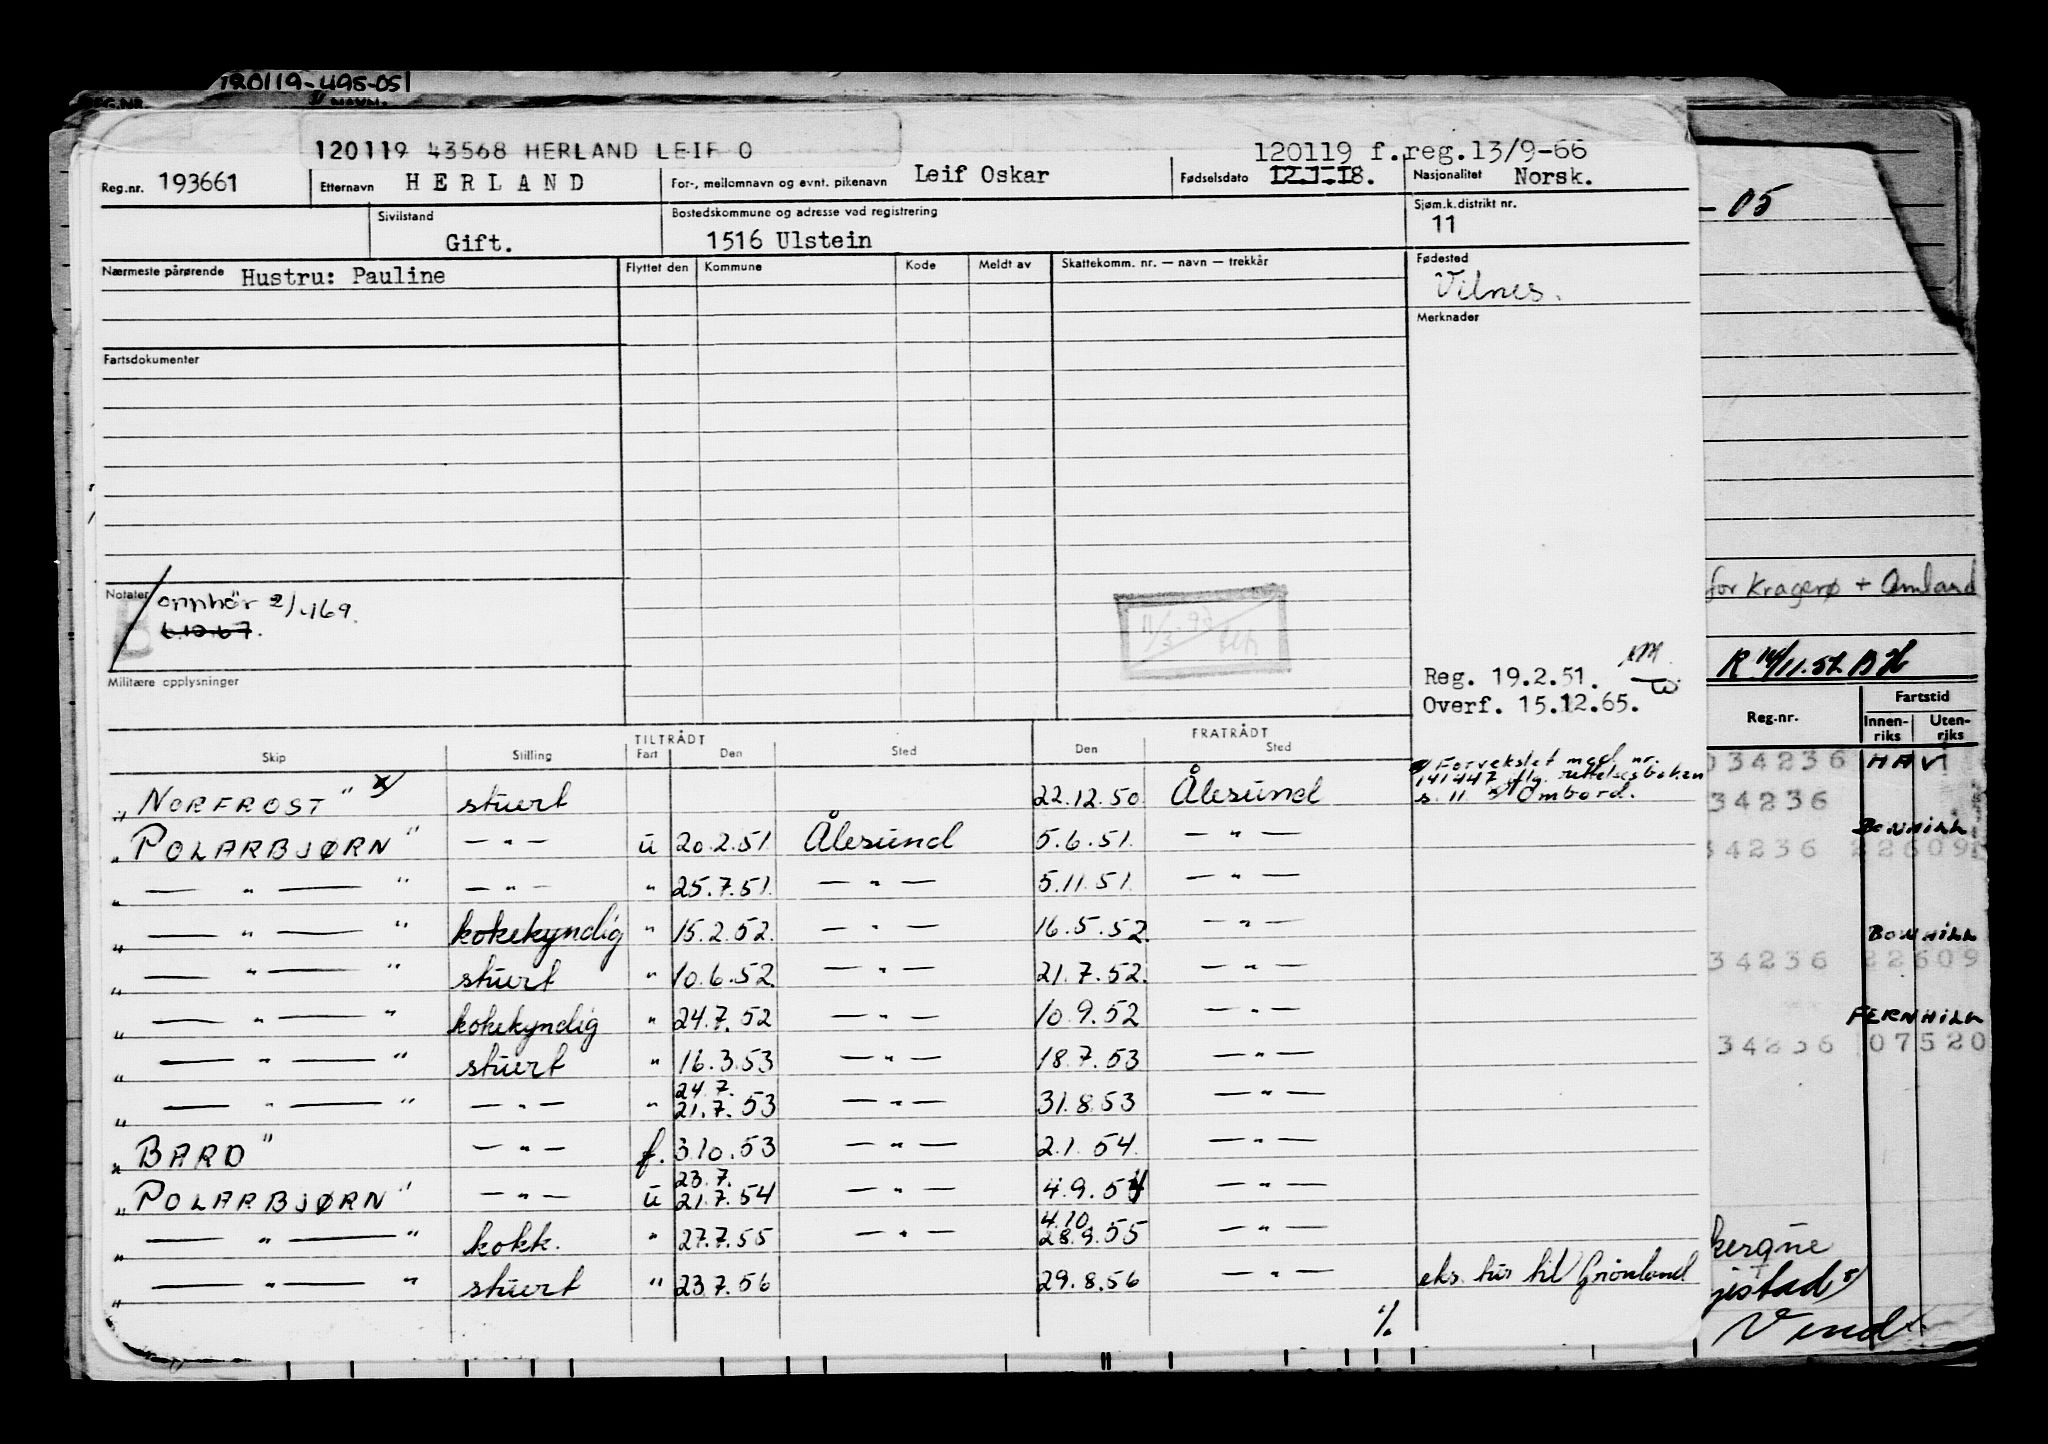 120119-498-05
120119 43568 HERLAND LEIF O
120119 f.reg.13/9-66
Reg.nr. 193661 Etternavn HERLAND For-, mellomnavn og evnt. pikenavn Leif Oskar Fødselsdato 12.I.18. Nasjonalitet Norsk.
Sivilstand Gift. Bostedskommune og adresse ved registrering 1516 Ulstein Sjøm.k.distrikt nr. 11
Nærmeste pårørende Hustru: Pauline Flyttet den Kommune Kode Meldt av Skattekomm. nr. — navn — trekkår Fødested Vilnes.
Merknader
Fartsdokumenter
Notater onnhör 2/169.
6.10.67.
Militære opplysninger
Reg. 19.2.51.
Overf. 15.12.65.
TILTRÅDT FRATRÅDT
Skip Stilling Fart Den Sted Den Sted
x/ Forvekslet med nr.
141447 iflg. rettelsesboken
s. 11 x/ Ombord.
"NORFROST" x/ stuert 22.12.50 Ålesund
"POLARBJØRN" — " — u 20.2.51 Ålesund 5.6.51. — " —
" — " — " — " — " 25.7.51. — " — 5.11.51. — " —
" — " — " kokekyndig " 15.2.52. — " — 16.5.52. — " —
" — " — " stuert " 10.6.52. — " — 21.7.52. — " —
" — " — " kokekyndig " 24.7.52 — " — 10.9.52 — " —
" — " — " stuert " 16.3.53 — " — 18.7.53 — " —
24.7.
" — " — " — " — " 21.7.53 — " — 31.8.53 — " —
"BARD" — " — f. 3.10.53 — " — 2.1.54. — " —
23.7.
"POLARBJØRN" — " — u 21.7.54 — " — 4.9.54 — " —
4.10
" — " — " kokk. " 27.7.55 — " — 28.9.55 — " —
" — " — " stuert " 23.7.56 29.8.56 — " — eks. tur til Grönland
%
- 05
for Kragerø + Omland
R 14/11.52
Reg.nr. Fartstid
Innen-riks Uten-riks
034236 HAV
34236
BONHILL
34236 22609
BONHILL
34236 22609
FERNHILL
34236 07520
Vend